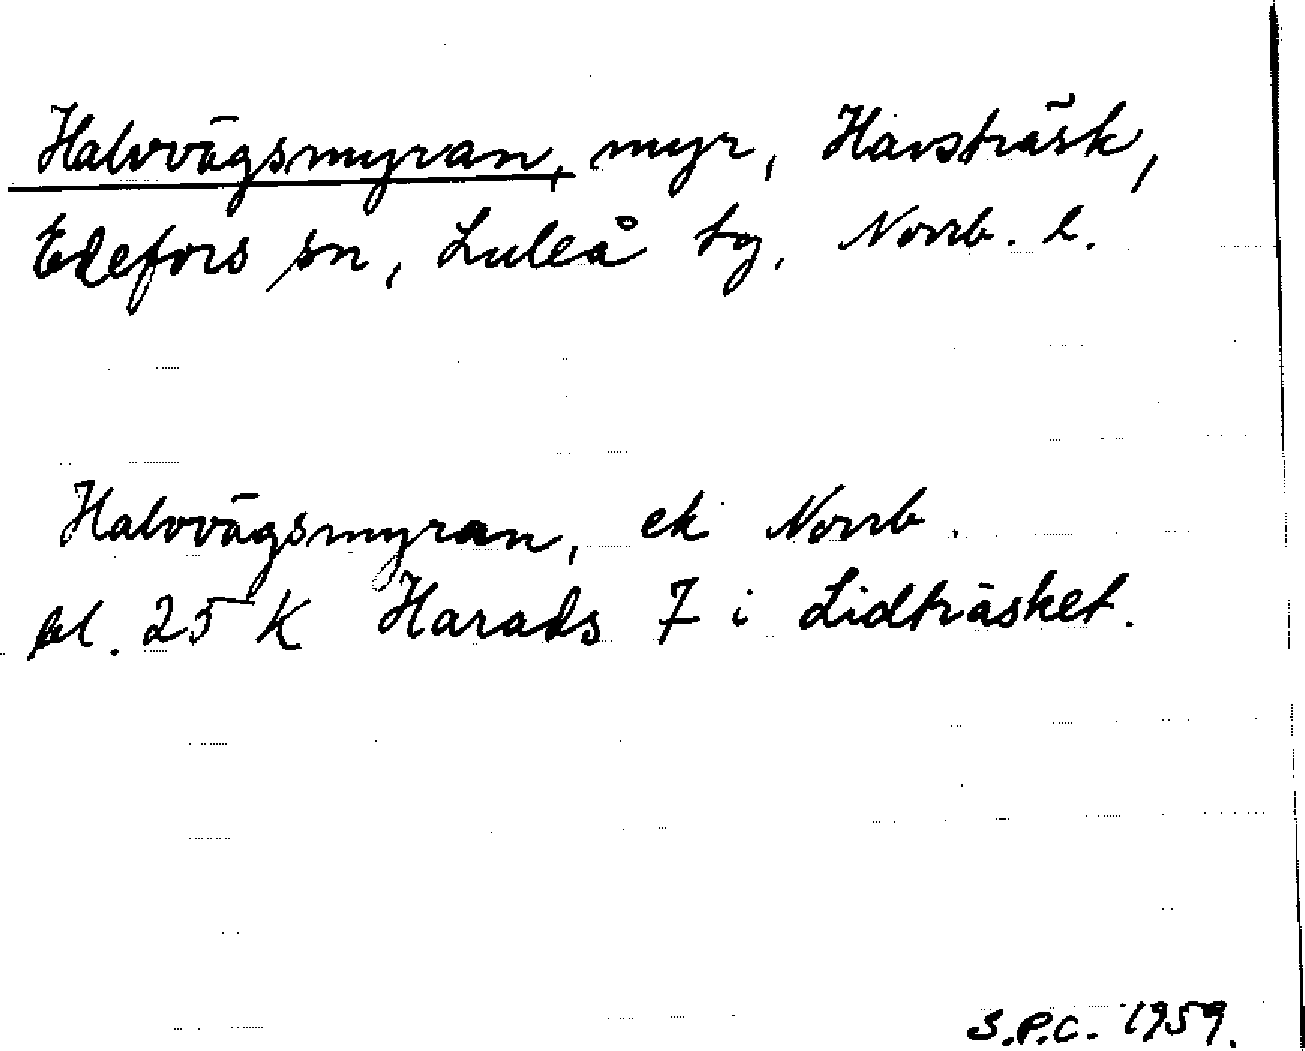 Halvvägsmyran, myr, Havsträsk,
Edefors sn, Luleå tg, Norrb. l.
Halvvägsmyran, ek Norrb.
bl. 25 K Harads 7 i Lidträsket.
S.P.C. 1959.